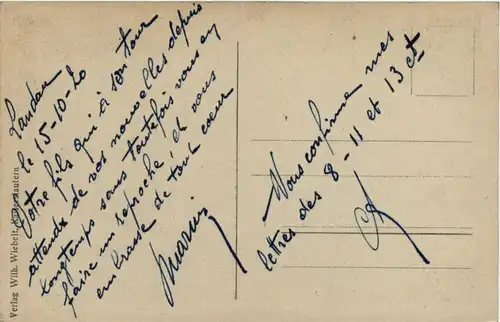 Landau
le 15-10-20
Votre fils qui à son tour
attends de vos nouvelles depuis
longtemps sans toutefois vous en
faire un reproche et vous
embrasse de tout coeur
Marius
Vous confirme mes
lettres des 8-11 et 13 ct
Verlag Wilh. Wiebelt, Kaiserslautern